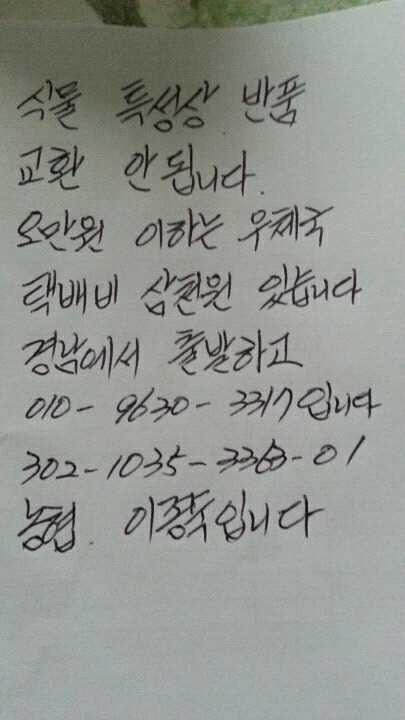 식물 특성상 반품
교환 안 됩니다.
오만원 이하는 우체국
택배비 삼천원 있습니다
경남에서 출발하고
010-9630-3317입니다
302-1035-3363-01
농협. 이정두입니다